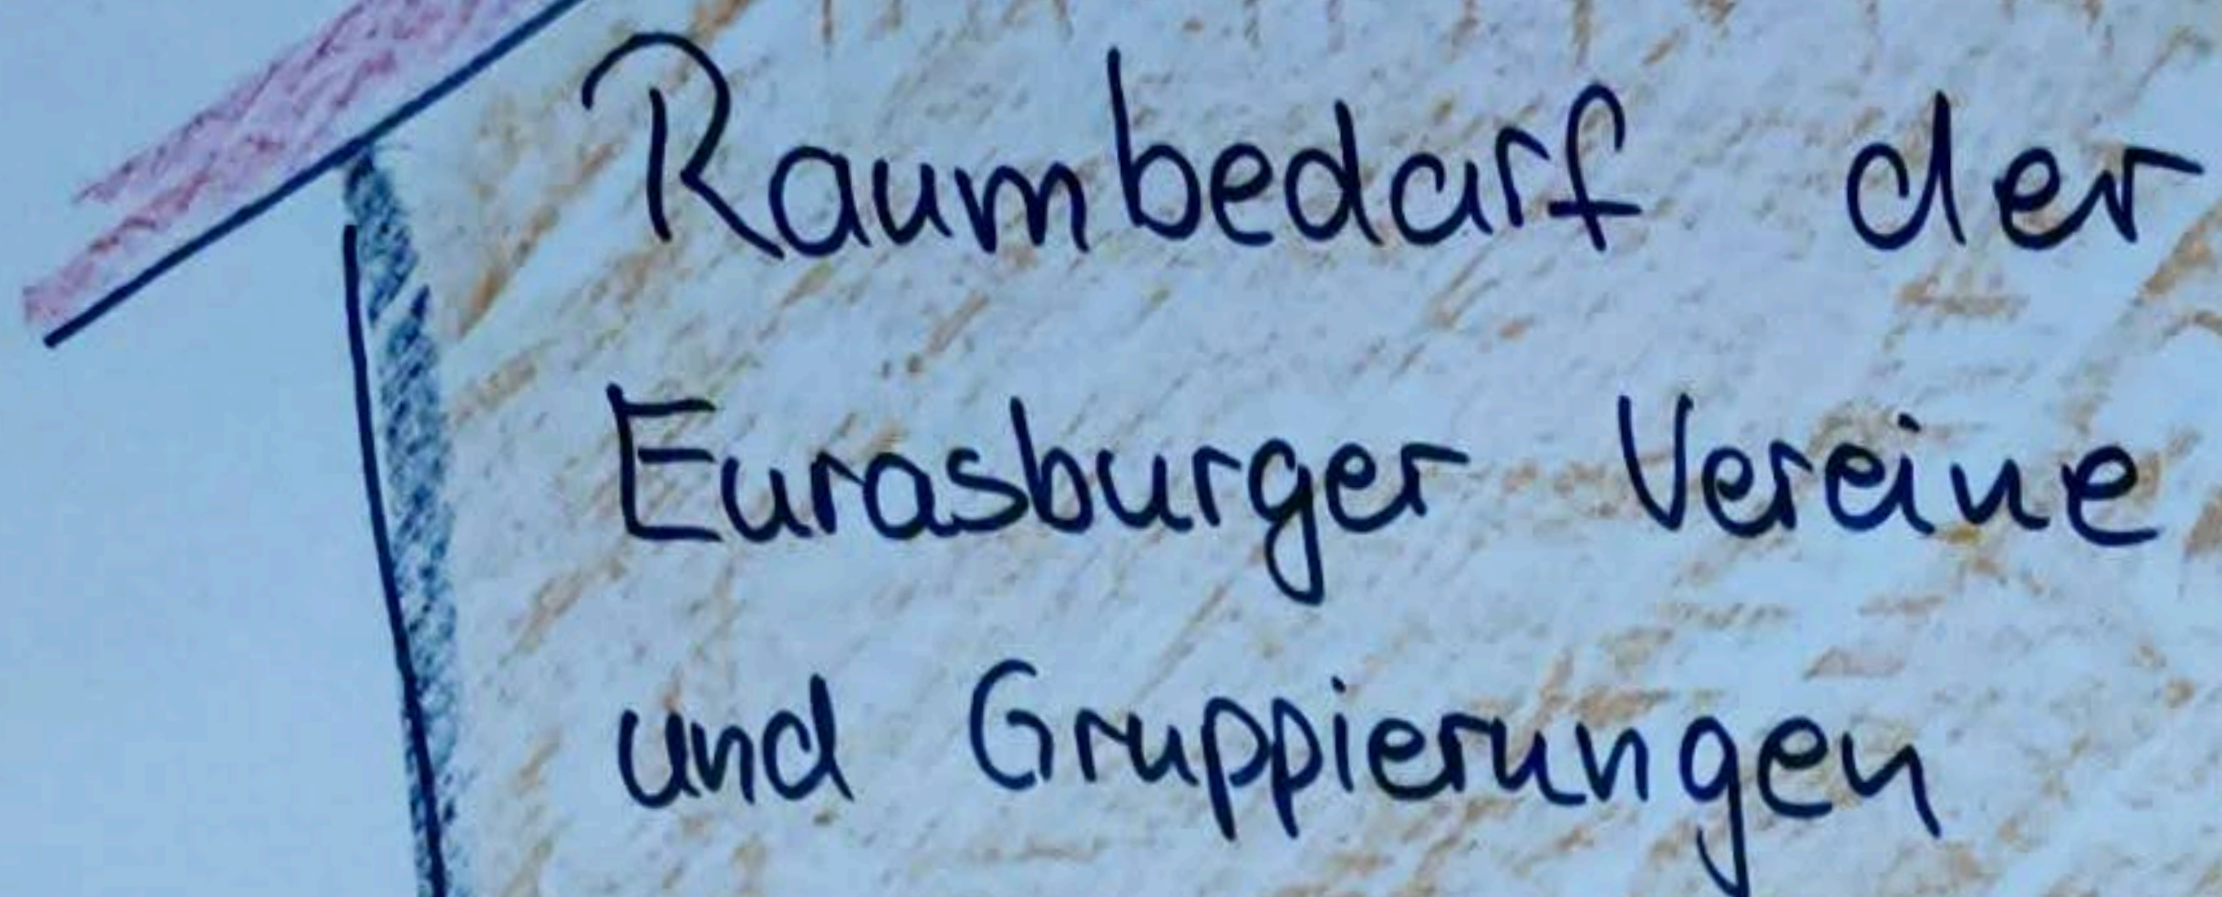 Raumbedarf der
Eurasburger Vereine
und Gruppierungen